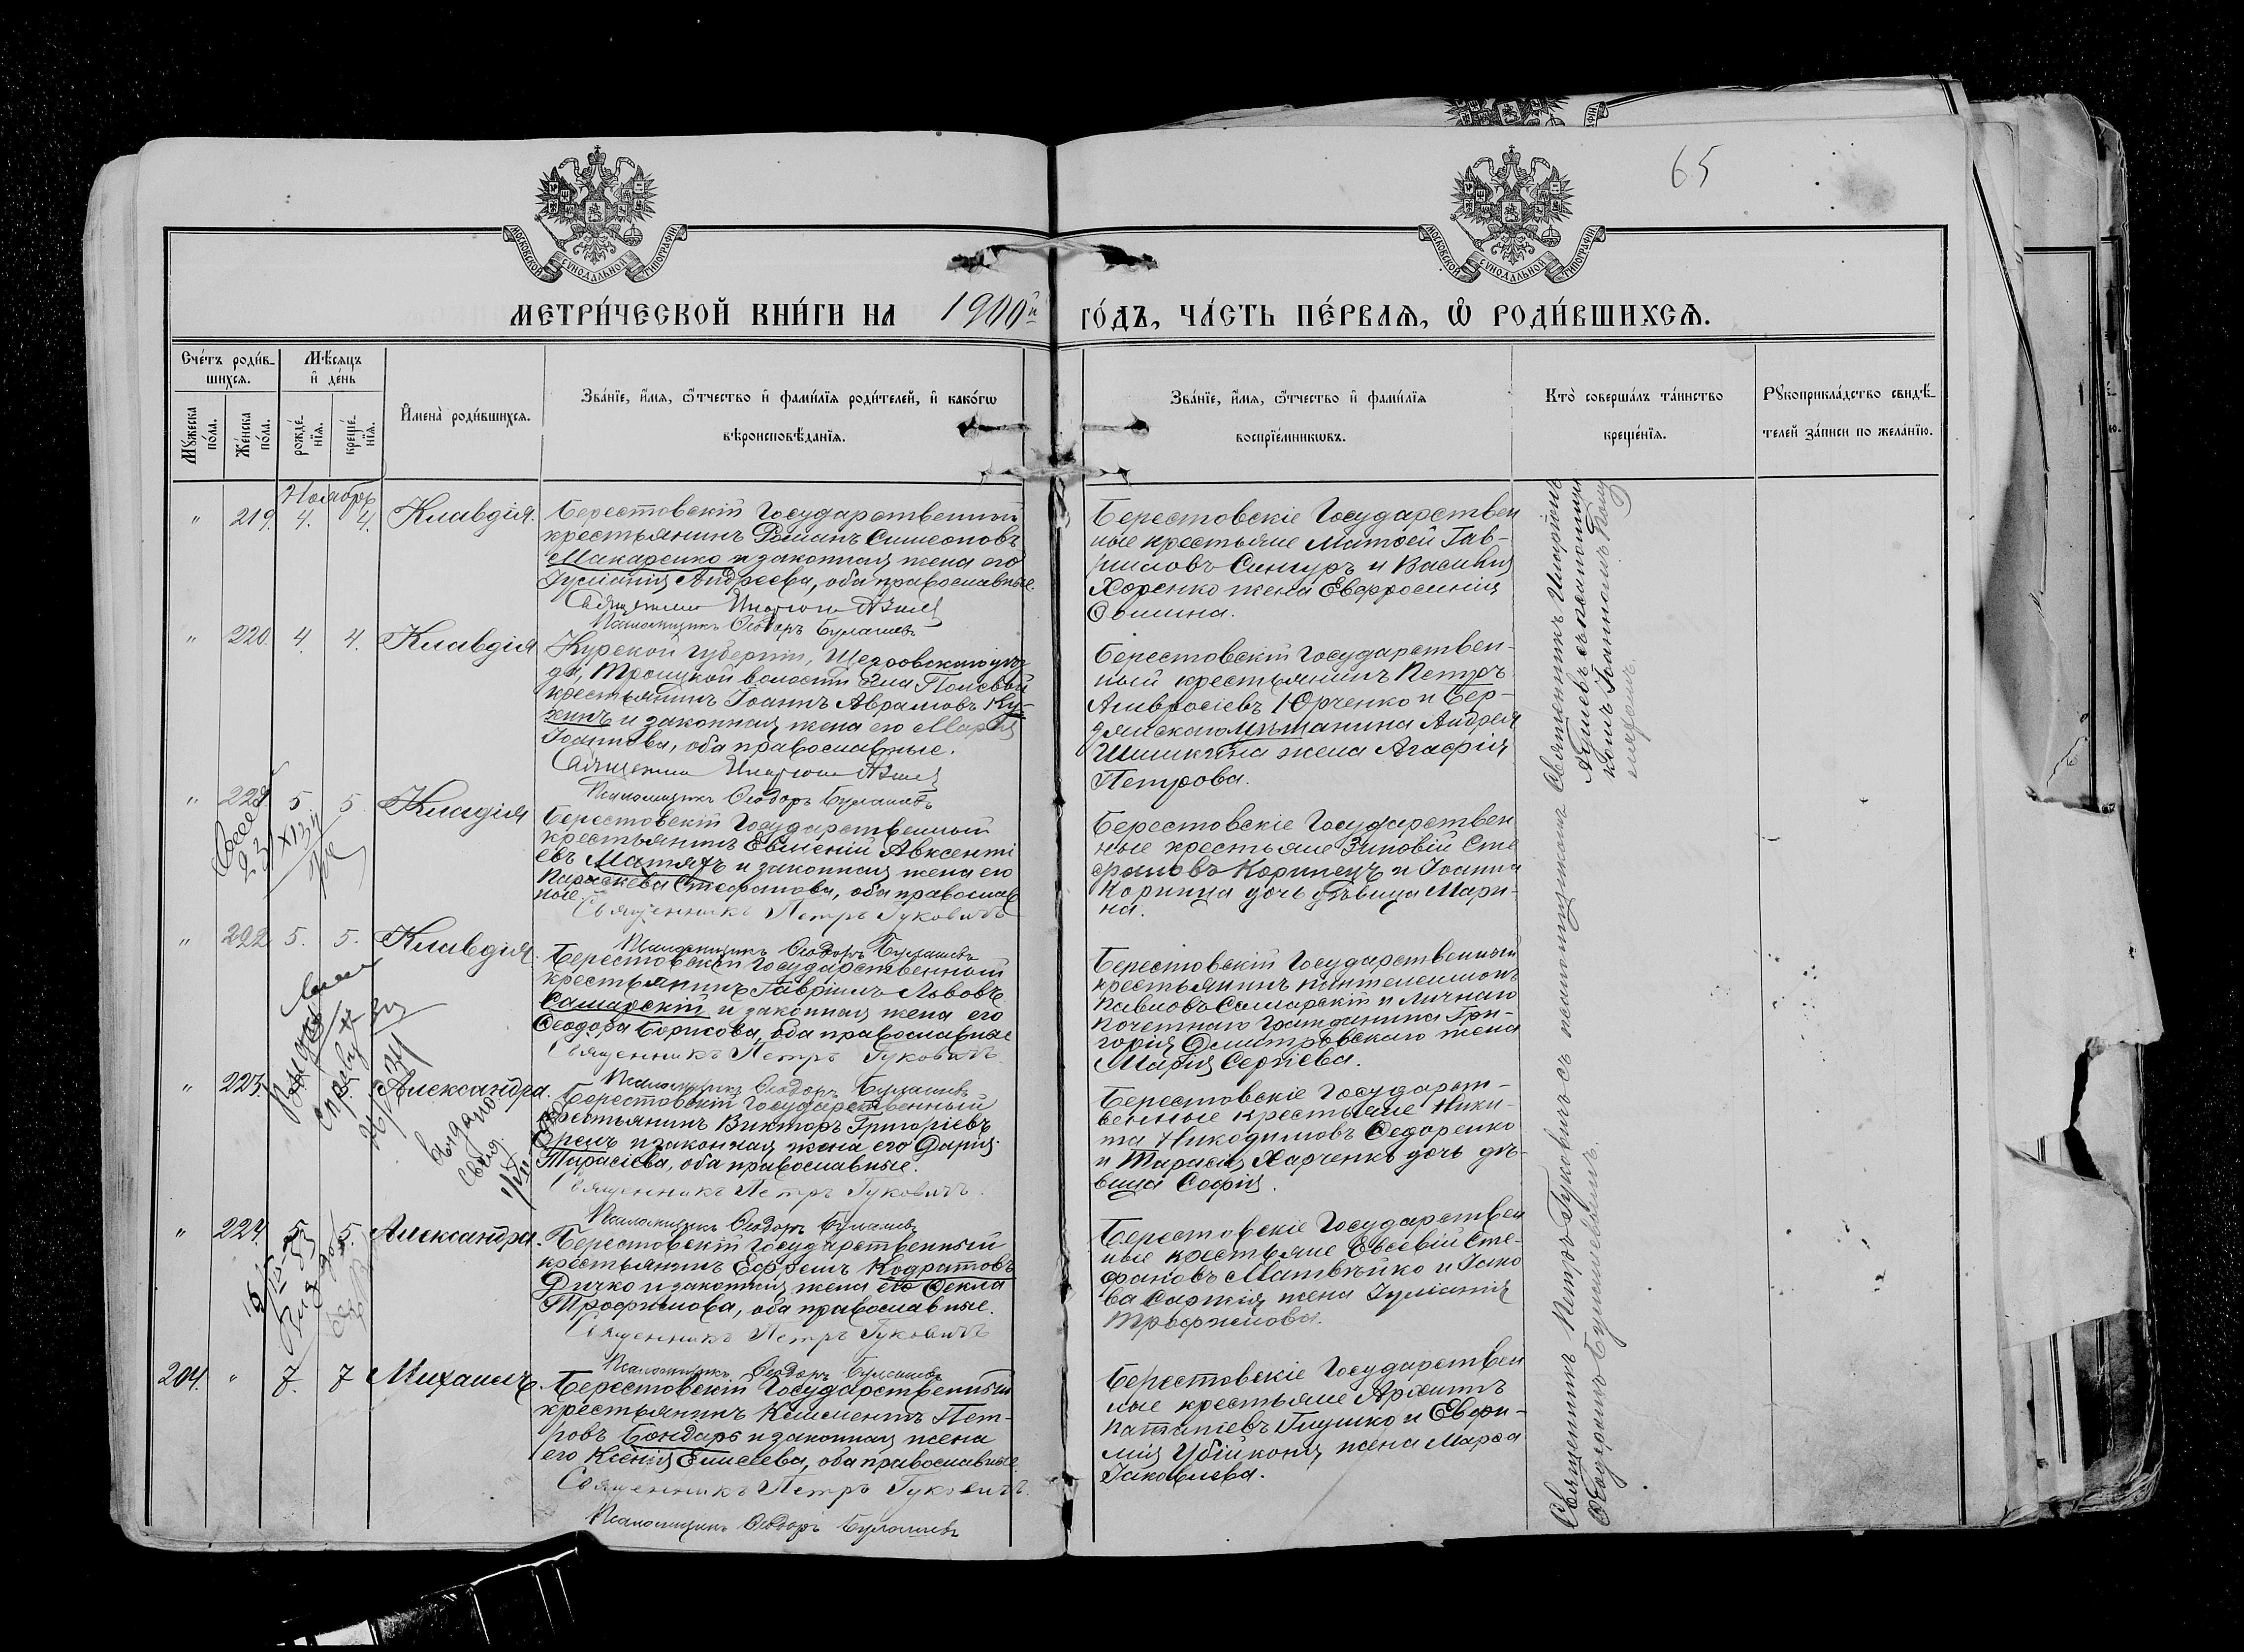 65
МОСКОВСКОЙ СѴНОДАЛЬНОЙ ТИПОГРАФІИ
МОСКОВСКОЙ СѴНОДАЛЬНОЙ ТИПОГРАФІИ
МЕТРИ́ЧЕСКОЙ КНИ́ГИ НА 1900й ГО́ДЪ, ЧА́СТЬ ПЕ́РВАѦ, Ѡ҆ РОДИ́ВШИХСѦ.
Сче́тъ роди́в-
шихсѧ.
Мꙋ́жеска
по́ла.
Же́нска
по́ла.
Мѣ́сѧцъ
и҆ де́нь
рожде́-
нїѧ.
креще́-
нїѧ.
И҆мена̀ роди́вшихсѧ.
Зва́нїе, и҆́мѧ, ѻ҆́тчество и҆ фами́лїѧ роди́телей, и҆ како́гѡ
вѣроисповѣ́данїѧ.
Зва́нїе, и҆́мѧ, ѻ҆́тчество и҆ фами́лїѧ
воспрїе́мникѡвъ.
Кто̀ соверша́лъ та́инство
креще́нїѧ.
Рꙋкоприкла́дство свидѣ́-
телей за́писи по жела́нїю.
Ноябрь
" 219. 4. 4. Клавдія.
Берестовскій Государственный
крестьянинъ Романъ Симеоновъ
Макаренко и законная жена его
Іуліанія Андреева, оба православные.
Священник
Псаломщикъ Ѳеодоръ Булашевъ
Берестовскіе Государствен
ные крестьяне Матѳей Гав-
риловъ Сингуръ и Василія
Хоренко жена Евфросинія
Ѳомина.
" 220. 4. 4. Клавдія
Курской губерніи, Щегровскаго уѣз
да, Троицкой волости села
крестьянинъ Іоаннъ Аврамовъ
и законная жена его Марія
Іоаннова, оба православные.
Священник
Псаломщикъ Ѳеодоръ Булашевъ
Берестовскій Государствен-
ный крестьянинъ Петръ
Амвросіевъ Юрченко и Бер-
дянскаго мѣщанина Андрея
Шишкина жена Агафія
Петрова.
" 221 5. 5 Клавдія
Берестовскій Государственный
крестьянинъ Евменій Авксенті
евъ Матяхъ и законная жена его
Параскева Стефанова, оба православ
ные.
Священникъ Петръ Гуковичъ
Псаломщикъ Ѳеодоръ Булашевъ
Берестовскіе Государствен
ные крестьяне Зиновій Сте
фановъ Коринецъ и Іоанна
Коринца дочь дѣвица Мари-
на.
" 222 5. 5. Клавдія.
Берестовскій Государственный
крестьянинъ Гавріилъ Львовъ
Самарскій и законная жена его
Ѳеодора Борисова, оба православные
Священникъ Петръ Гуковичъ
Псаломщикъ Ѳеодоръ Булашевъ
Берестовскій Государственный
крестьянинъ Пантелеимонъ
Павловъ Самарскій и личнаго
почетнаго гражданина Гри-
горія жена
Марія Сергіева.
" 223. Александра.
Берестовскій Государственный
крестьянинъ Викторъ Григоріевъ
и законная жена его Дарія
Тарасіева, оба православные.
Священникъ Петръ Гуковичъ.
Псаломщикъ Ѳеодоръ Булашевъ
Берестовскіе Государст-
венные крестьяне Ники-
та Никодимовъ Ѳедоренко
и Тарасія Харченко дочь дѣ-
вица Софія.
Выдано
" 224. 5 5. Александра.
Берестовскій Государственный
крестьянинъ Ефремъ Кодратовъ
Дичко и законная жена его Ѳекла
Трофимова, оба православные.
Священникъ Петръ Гуковичъ
Псаломщикъ Ѳеодоръ Булашевъ
Берестовскіе Государствен
ные крестьяне Евсевій Сте-
фановъ Матвѣйко и Іако
ва жена Іуліанія
Трофимова.
204. " 7. 7 Михаилъ.
Берестовскій Государственный
крестьянинъ Климентъ Пет-
ровъ Бондарь и законная жена
его Ксенія Елисеева, оба православные.
Священникъ Петръ Гуковичъ.
Псаломщикъ Ѳеодоръ Булашевъ
Берестовскіе Государствен
ные крестьяне Архипъ
Глушко и Евфи-
мія Убійконя жена Марѳа
Іаковлева.
Священникъ Иларіонъ
съ псаломщи
комъ Іоанномъ
Священникъ Петръ Гуковичъ съ псаломщикомъ
Ѳеодоромъ Булашевымъ.